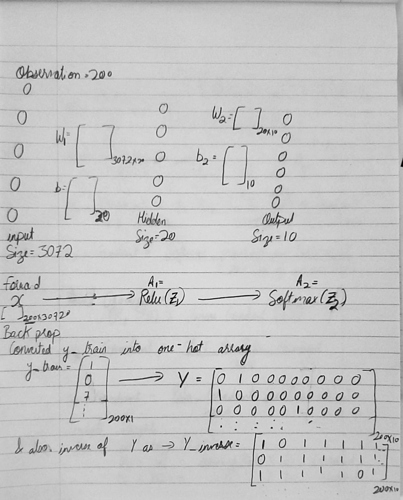 Observation = 200
W₁ = [ ]3072x20
W₂ = [ ]20x10
b = [ ]20
b₂ = [ ]10
input
Size = 3072
Hidden
Size = 20
Output
Size = 10
Forward
X [ ]200x3072 → A₁ = Relu(Z₁) → A₂ = Softmax(Z₂)
Back prop
Converted y_train into one-hot array
y_train = [1 0 7 ⋮]200x1 → Y = [0 1 0 0 0 0 0 0 0 0
1 0 0 0 0 0 0 0 0
0 0 0 0 0 1 0 0 0 0
. . . . . . .]200x10
& also inverse of Y as → Y_inverse = [1 0 1 1 1 1 1
0 1 1 1 1 1
1 1 1 1 1 0 1]200x10